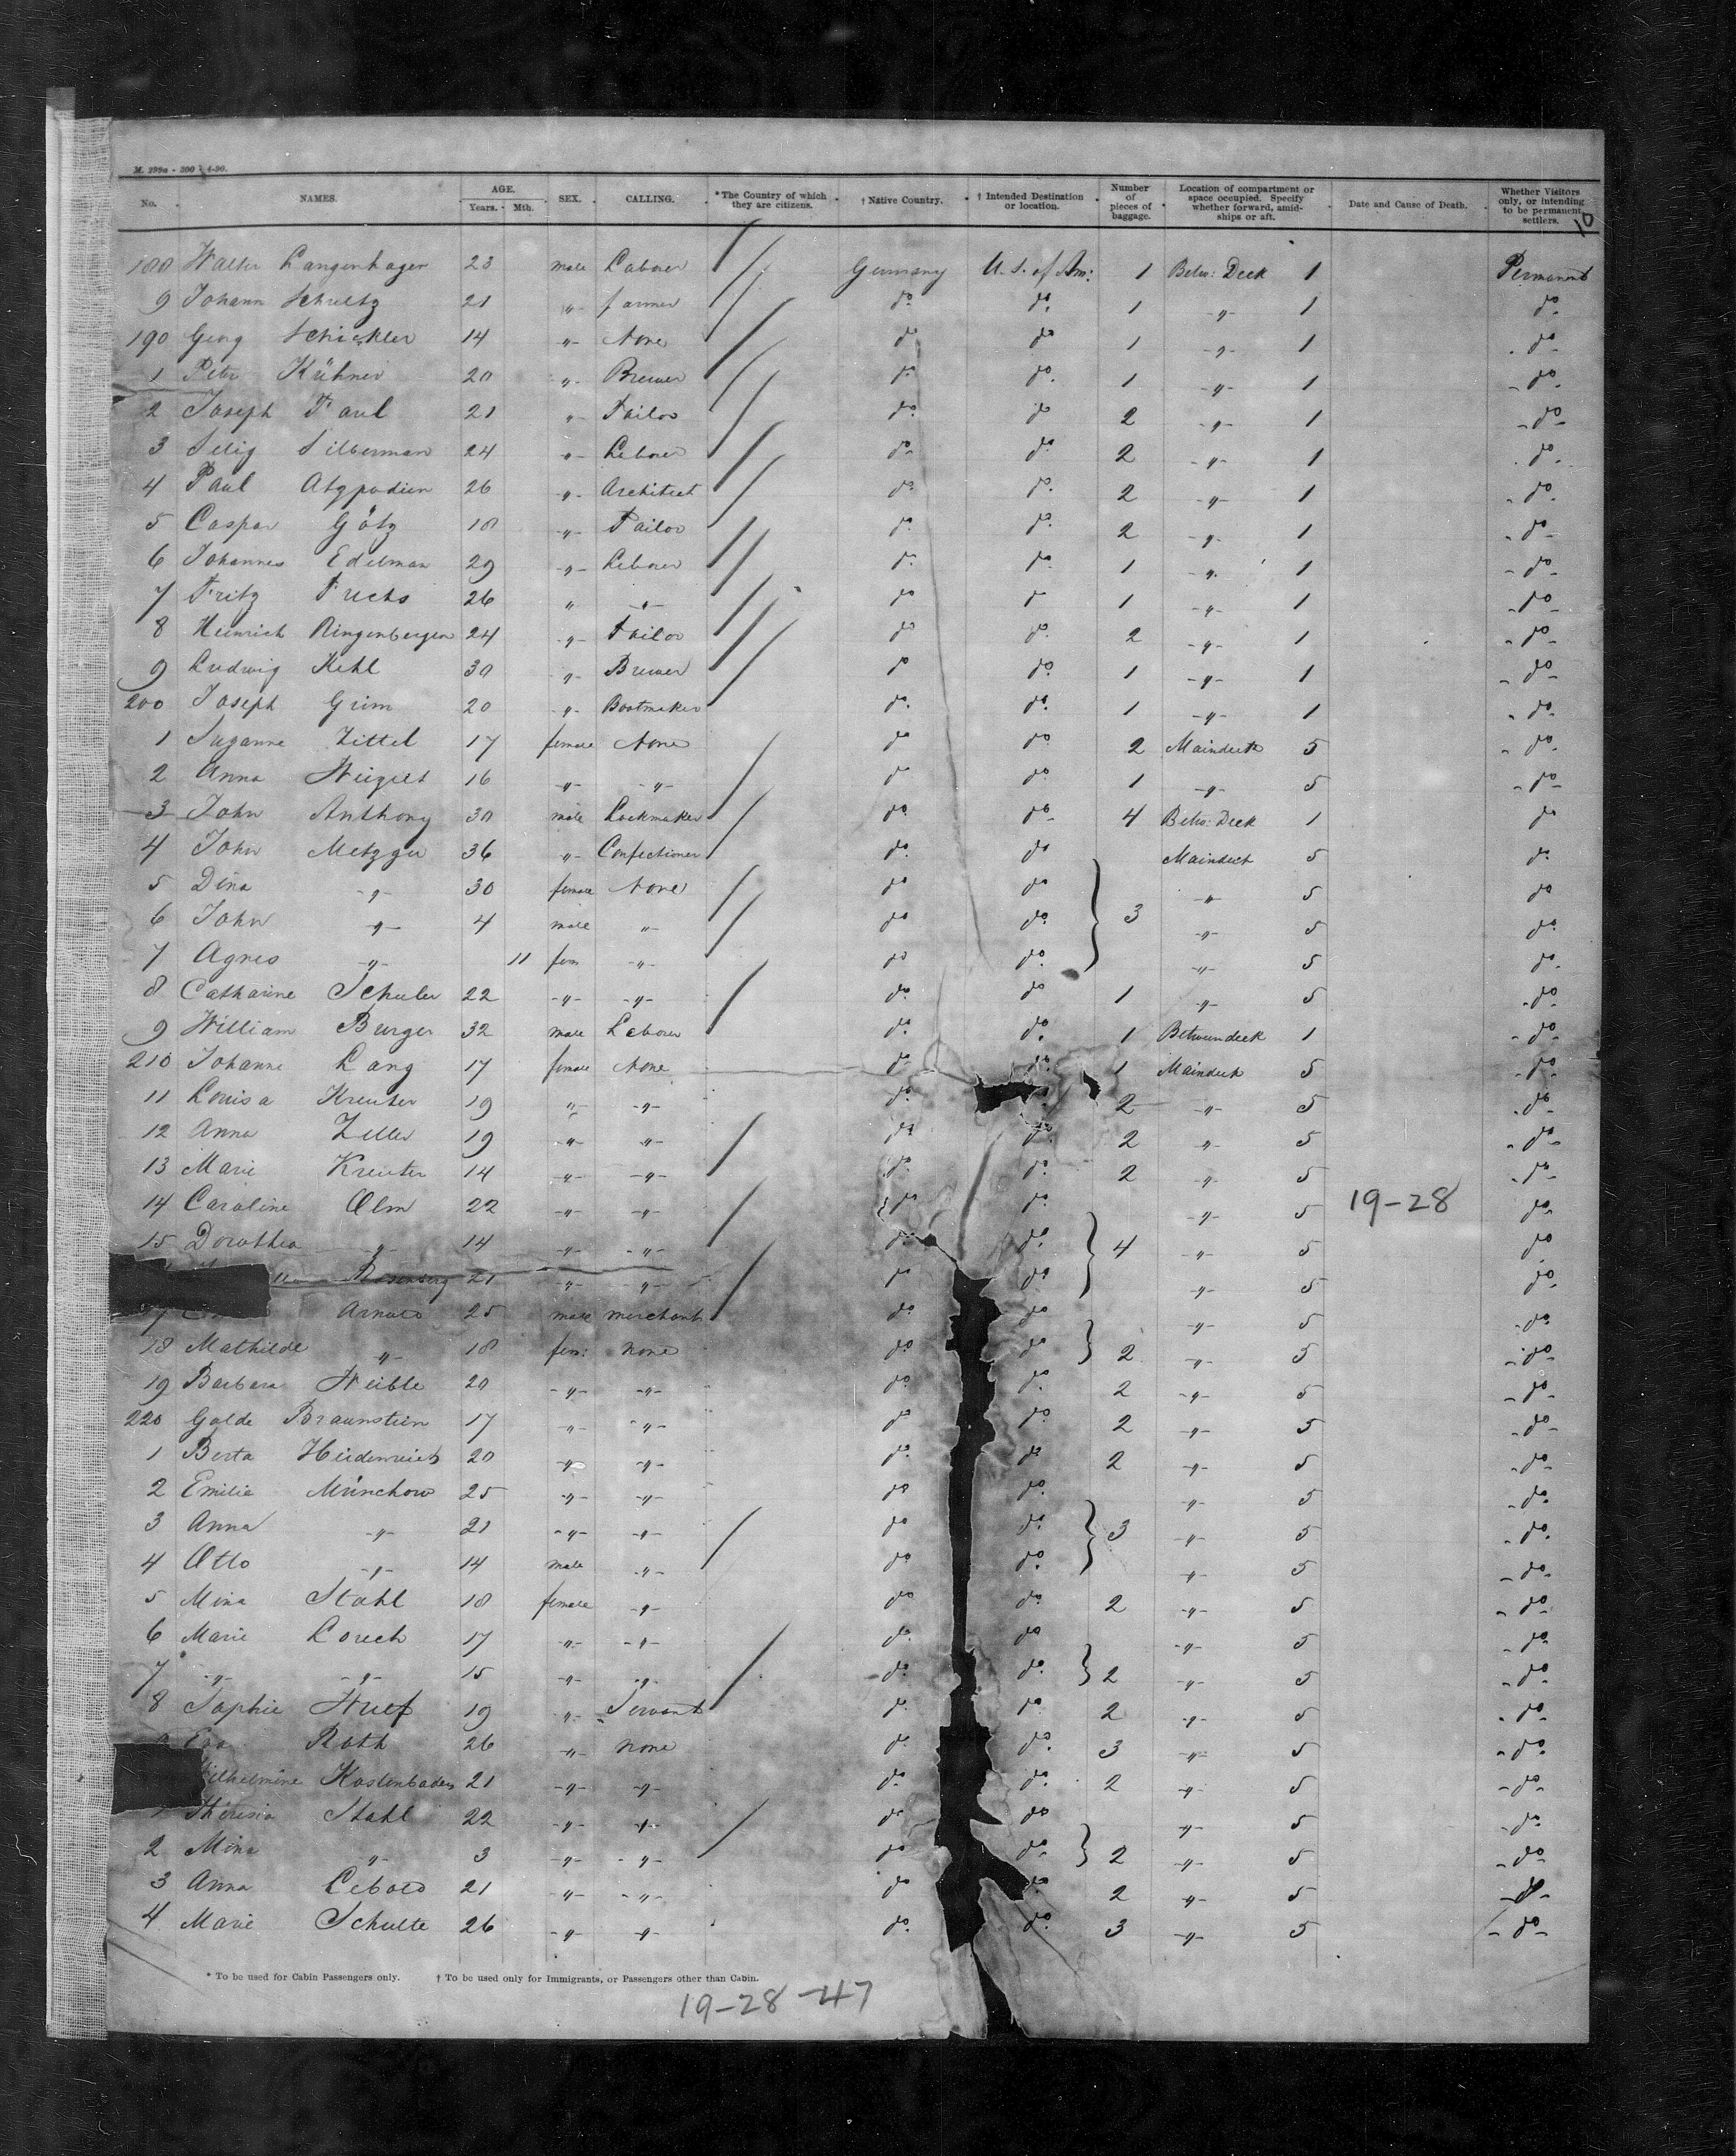 M. 299a - 300 - 4-90.
No. NAMES. AGE. Years. Mth. SEX. CALLING. * The Country of which they are citizens. † Native Country. † Intended Destination or location. Number of pieces of baggage. Location of compartment or space occupied. Specify whether forward, amidships or aft. Date and Cause of Death. Whether Visitors only, or intending to be permanent settlers.
10
188 Walter Langenhagen 23 male Laborer Germany U. S. of Am: 1 Betw: Deck 1 Permanent
9 Johann Schultz 21 -"- farmer do do 1 -"- 1 do
190 Georg Schickler 14 -"- None do do 1 -"- 1 do
1 Peter Kühner 20 -"- Brewer do do 1 -"- 1 do
2 Joseph Faul 21 -"- Tailor do do 2 -"- 1 do
3 Selig Silberman 24 -"- Laborer do do 2 -"- 1 do
4 Paul 26 -"- Architect do do 2 -"- 1 do
5 Caspar Götz 18 -"- Tailor do do 2 -"- 1 do
6 Johannes Edelman 29 -"- Laborer do do 1 -"- 1 do
7 Fritz Fuchs 26 " -"- do do 1 -"- 1 do
8 Heinrich Ringenbergen 24 -"- Tailor do do 2 -"- 1 do
9 Ludwig Kehl 30 -"- Brewer do do 1 -"- 1 do
200 Joseph Grim 20 -"- Bootmaker do do 1 -"- 1 do
1 Suzanne Zittel 17 female None do do 2 Maindeck 5 do
2 Anna Weigelt 16 -"- -"- do do 1 -"- 5 do
3 John Anthony 30 male Lockmaker do do 4 Betw: Deck 1 do
4 John Metzger 36 -"- Confectioner do do Maindeck 5 do
5 Dina -"- 30 female None do do -"- 5 do
6 John -"- 4 male -"- do do 3 -"- 5 do
7 Agnes -"- 11 fem -"- do do -"- 5 do
8 Catharine Schuler 22 -"- -"- do do 1 -"- 5 do
9 William Burger 32 male Laborer do do 1 Betweendeck 1 do
210 Johanne Lang 17 female None do do 1 Maindeck 5 do
11 Louisa Kreuter 19 -"- -"- do 2 -"- 5 do
12 Anna Zeller 19 -"- -"- do do 2 -"- 5 do
13 Marie Kreuter 14 -"- -"- do do 2 -"- 5 do
14 Caroline Olm 22 -"- -"- do do -"- 5 19-28 do
15 Dorothea -"- 14 -"- -"- do do 4 -"- 5 do
Rosenberg 21 -"- -"- do do -"- 5 do
7 Arnold 25 male merchant do do -"- 5 do
18 Mathilde -"- 18 fem: none do do 2 -"- 5 do
19 Barbara Weible 20 -"- -"- do do 2 -"- 5 do
220 Golde Braunstein 17 -"- -"- do do 2 -"- 5 do
1 Berta Heidenreich 20 -"- -"- do do 2 -"- 5 do
2 Emilie Münchow 25 -"- -"- do do -"- 5 do
3 Anna -"- 21 -"- -"- do do 3 -"- 5 do
4 Otto -"- 14 male -"- do do -"- 5 do
5 Mina Stahl 18 female -"- do do 2 -"- 5 do
6 Marie Lorech 17 -"- -"- do do -"- 5 do
7 -"- -"- 15 -"- -"- do do 2 -"- 5 do
8 Sophie 19 -"- Servant do do 2 -"- 5 do
9 Eva Roth 26 -"- none do do 3 -"- 5 do
Wilhelmine Kostenbader 21 -"- -"- do do 2 -"- 5 do
Theresia Stahl 22 -"- -"- do do -"- 5 do
2 Mina -"- 3 -"- -"- do do 2 -"- 5 do
3 Anna Lebold 21 -"- -"- do do 2 -"- 5 do
4 Marie Schulte 26 -"- -"- do do 3 -"- 5 do
* To be used for Cabin Passengers only. † To be used only for Immigrants, or Passengers other than Cabin.
19-28-47